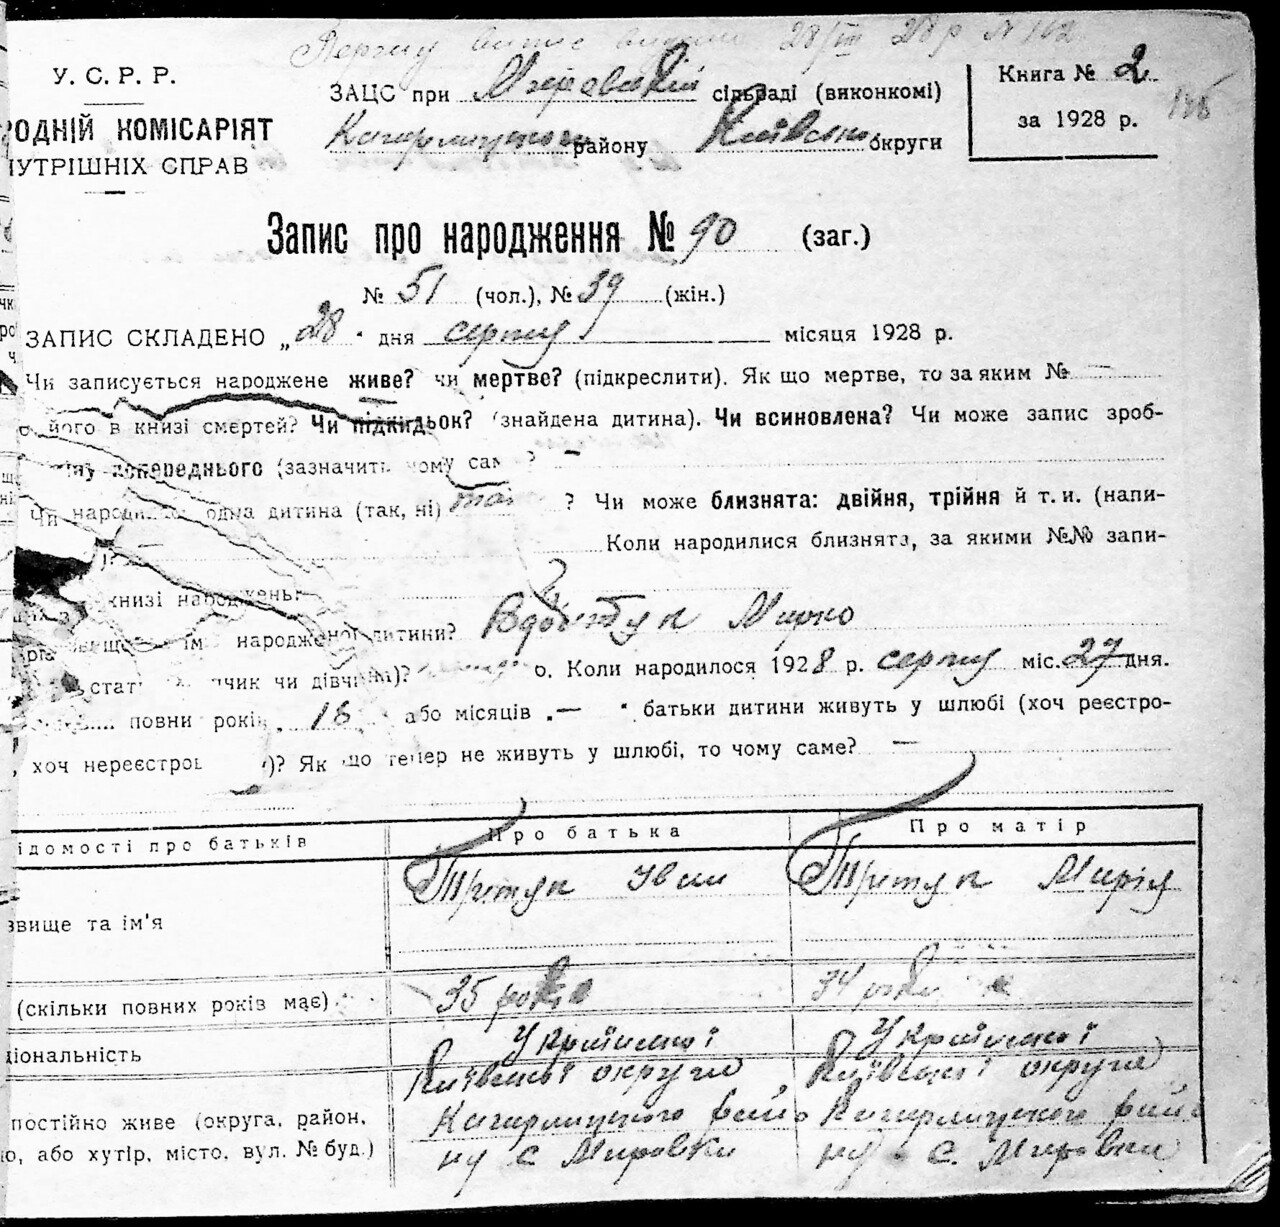 28/III 28 р № 162
У. С. Р. Р.
ЗАЦС при Мирівській сільраді (виконкомі)
Книга № 2
РОДНІЙ КОМІСАРІЯТ
Кагарлицького району Київської округи
за 1928 р.
НУТРІШНІХ СПРАВ
Запис про народження № 90 (заг.)
№ 51 (чол.), № 39 (жін.)
ЗАПИС СКЛАДЕНО „28" дня серпня місяця 1928 р.
Чи записується народжене живе? чи мертве? (підкреслити). Як що мертве, то за яким № —
його в книзі смертей? Чи підкидьок? (знайдена дитина). Чи всиновлена? Чи може запис зроб-
попереднього (зазначить чому сам ? —
Чи народи одна дитина (так, ні) так ? Чи може близнята: двійня, трійня й т. и. (напи-
Коли народилися близнята, за якими №№ запи-
книзі народжень:
ім народженої дитини? Марко
стать чик чи дівчин)? о. Коли народилося 1928 р. серпня міс. 27 дня.
повни рокі 18 або місяців „— " батьки дитини живуть у шлюбі (хоч реєстро-
, хоч нереєстров )? Як що тепер не живуть у шлюбі, то чому саме? —
ідомості про батьків Про батька Про матір
звище та ім'я Притуп Іван Притуп Марія
(скільки повних років має) 35 років 34 роки
ціональність Українці Українці
постійно живе (округа, район, Київської округи Київської округи
о, або хутір, місто, вул. № буд.) Кагарлицького райо Кагарлицького райо
ну с Мировки ну с. Мировки